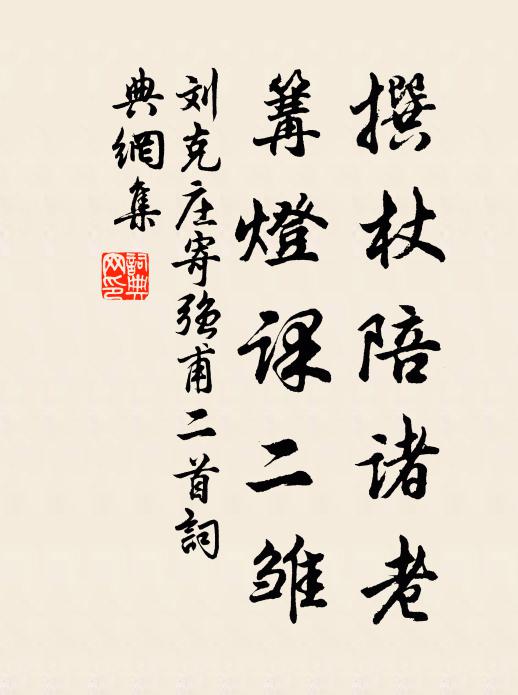 撰杖陪诸老
篝燈课二雏
刘克庄寄强甫二首詞
典網集
詞典网印